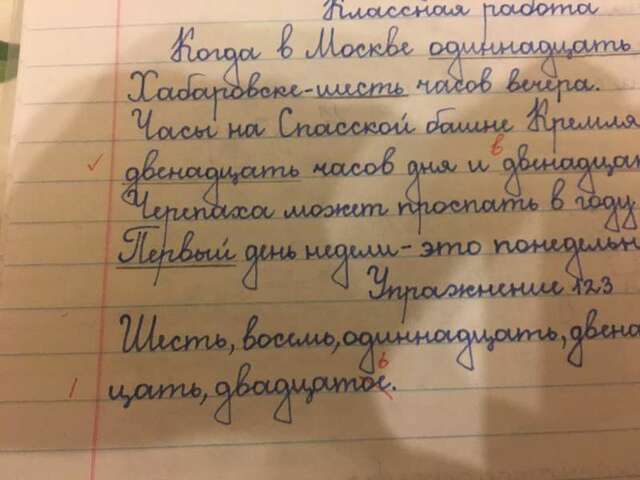 Классная работа
Когда в Москве одиннадцать
Хабаровске-шесть часов вечера.
Часы на Спасской башне Кремля
двенадцать часов дня и двенадца
Черепаха может проспать в году
Первый день недели-это понедельн
Упражнение 123
Шесть, восемь, одиннадцать, двена
цать, двадцать.